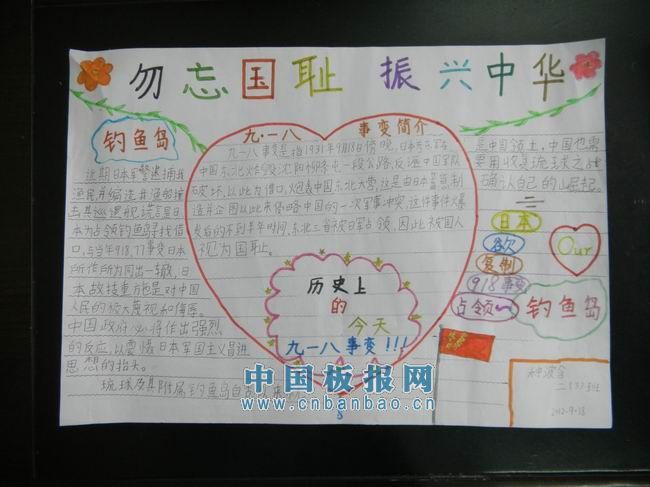 勿忘国耻 振兴中华
钓鱼岛
近期日本军警逮捕我
渔民并编造我渔船撞
击其巡逻艇谎言是日
本为占领钓鱼岛找借
口,与当年918,77事变日本
所作所为同出一辙,日
本故技重施是对中国
人民的极大蔑视和侮辱。
中国政府必将作出强烈
的反应,以震慑日本军国主义冒进
思想的抬头。
琉球及其附属钓鱼岛自古
九·一八 事变简介
九一八事变是指1931年9月18日傍晚,日本
中国东北炸毁沈阳柳条屯一段公路,反诬中国军队
破坏,以此为借口,炮轰中国东北大营,这是由日本蓄意制
造并企图以此来侵略中国的一次军事冲突,这件事件爆
发后的不到半年时间,东北三省被日军占领,因此被国人
视为国耻。
历史上
的
今天
九一八事变!!!
是中国领土,中国也需
要用收复琉球之战
确认自己的崛起。
日本
欲
复制
918事变
占领
钓鱼岛
Our
2012.9.18
中国板报网
www.cnbanbao.cn